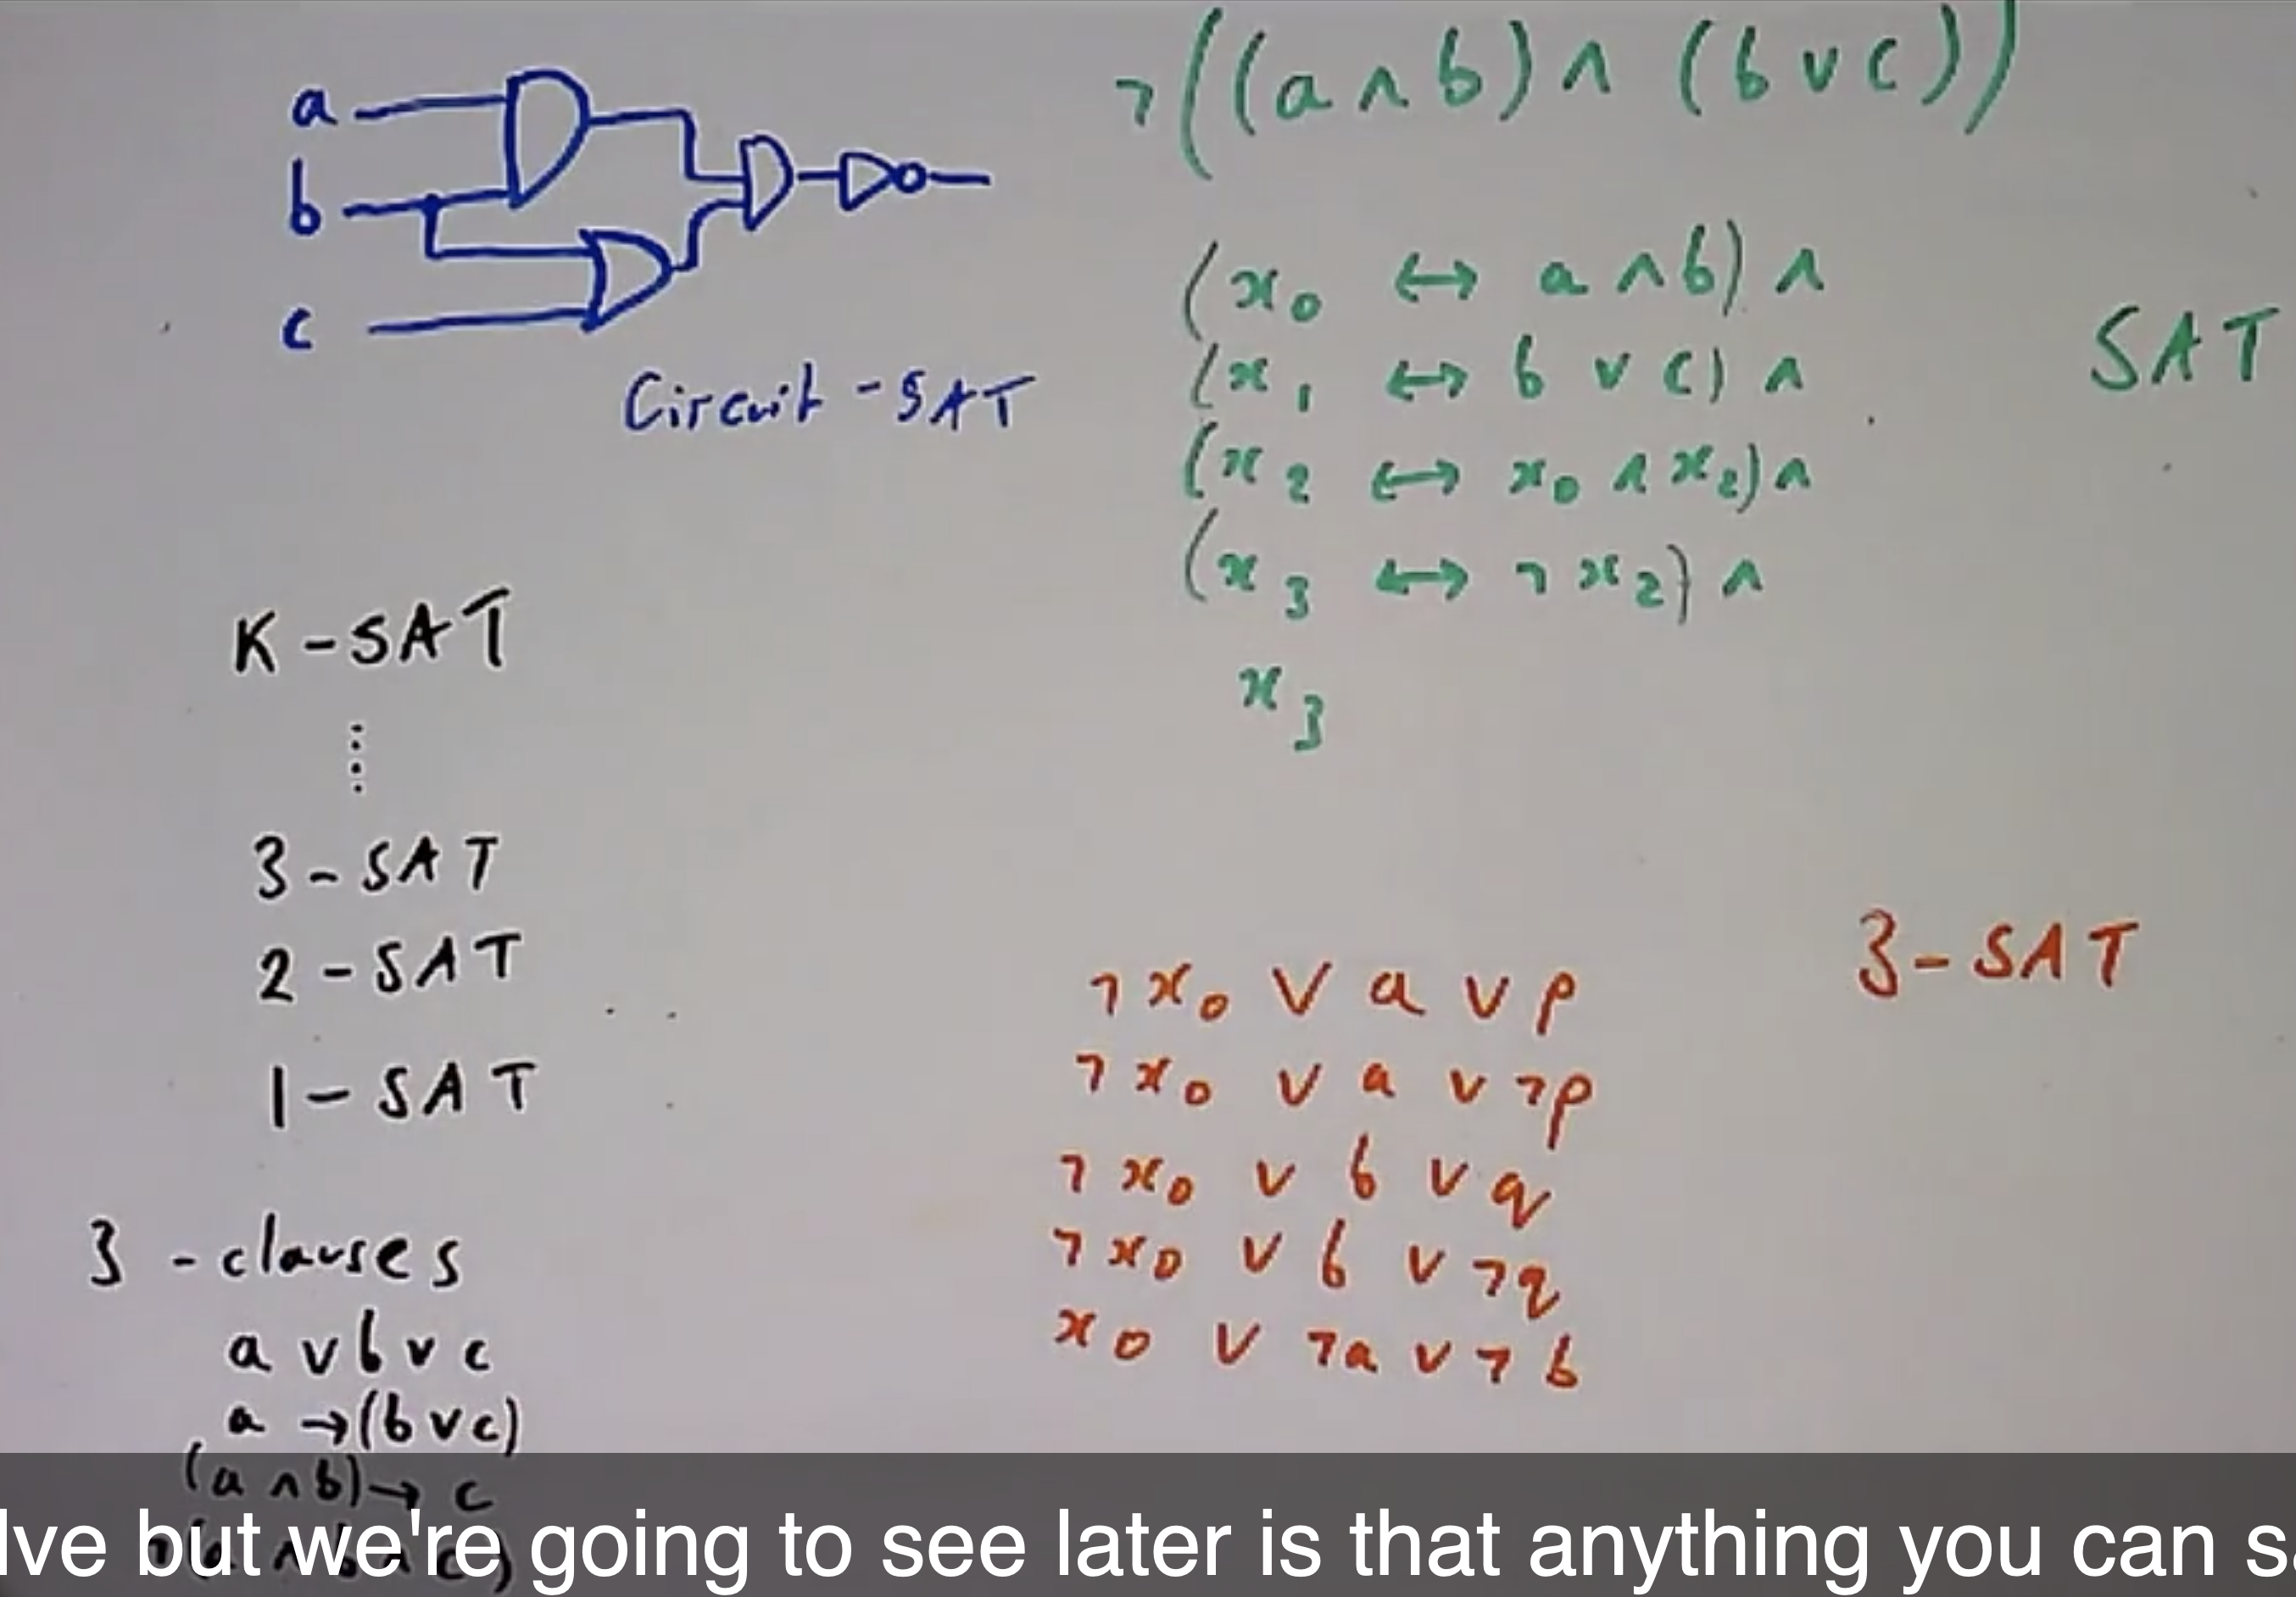 a
b
c
Circuit - SAT
¬((a ∧ b) ∧ (b ∨ c))
(x₀ ↔ a ∧ b) ∧
(x₁ ↔ b ∨ c) ∧
(x₂ ↔ x₀ ∧ x₂) ∧
(x₃ ↔ ¬x₂) ∧
x₃
SAT
K - SAT
⋮
3 - SAT
2 - SAT
1 - SAT
3 - clauses
a ∨ b ∨ c
a → (b ∨ c)
(a ∧ b) → c
3 - SAT
¬x₀ ∨ a ∨ p
¬x₀ ∨ a ∨ ¬p
¬x₀ ∨ b ∨ q
¬x₀ ∨ b ∨ ¬q
x₀ ∨ ¬a ∨ ¬b
lve but we're going to see later is that anything you can s